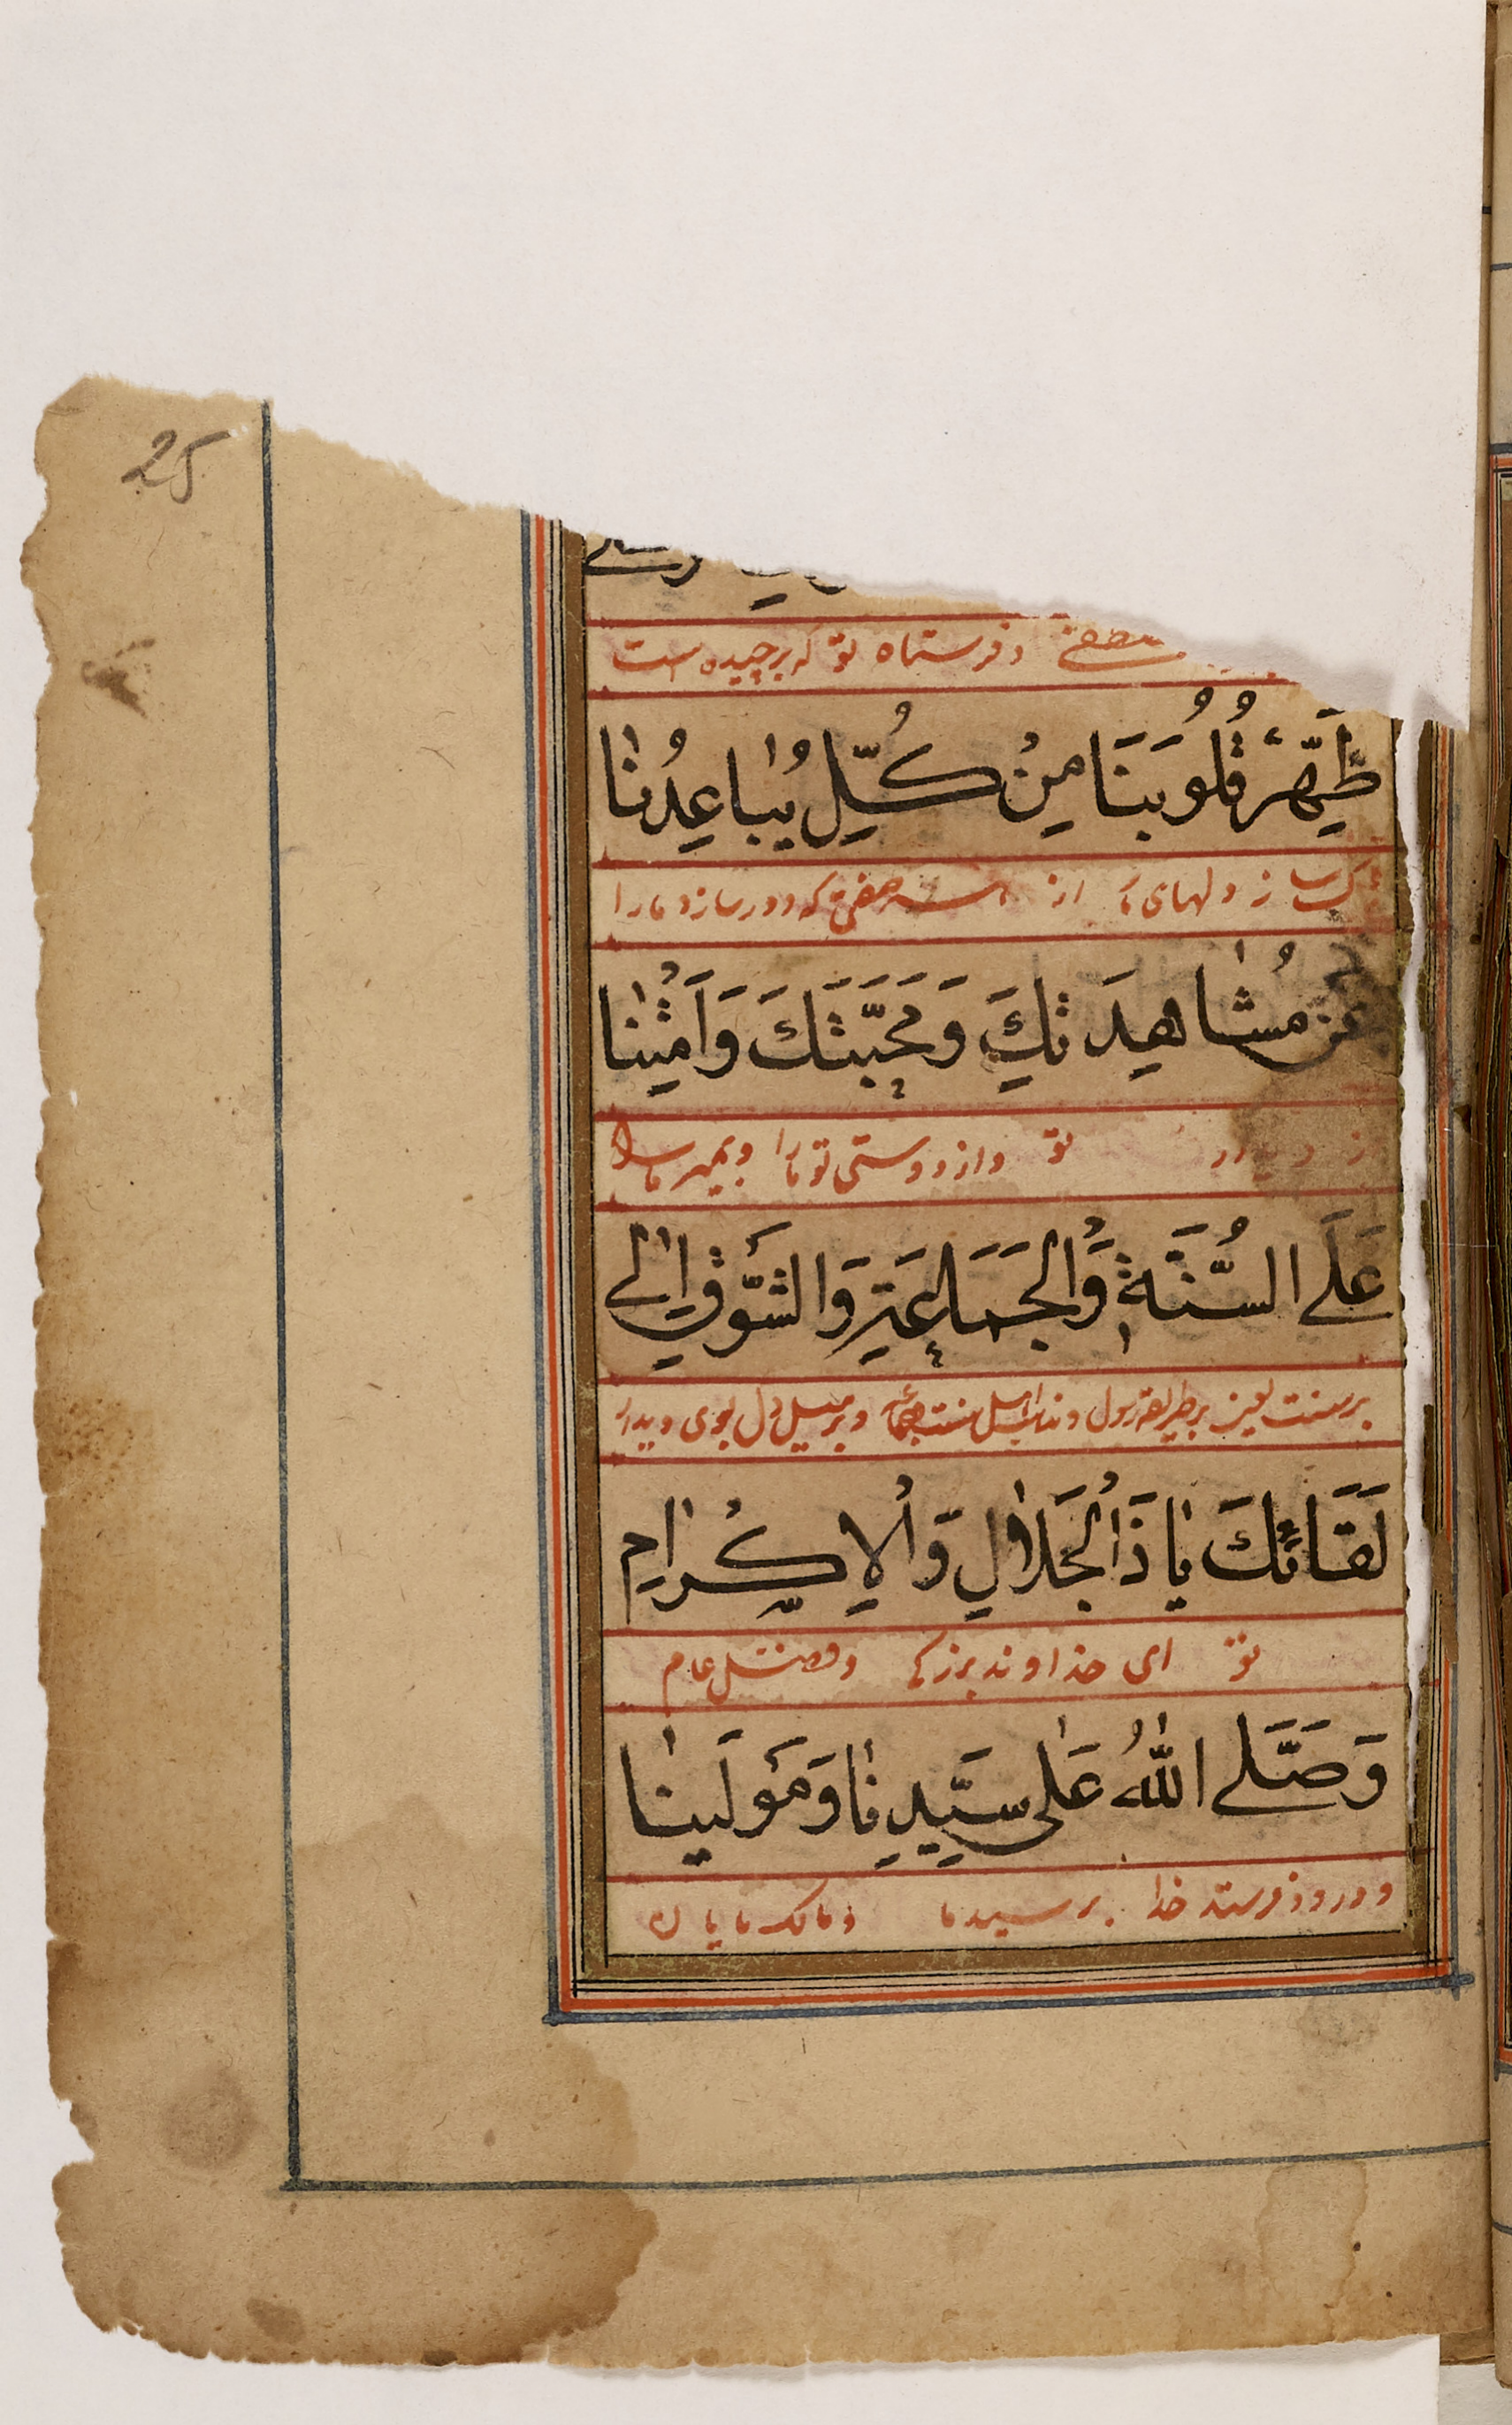 25
وفرستاده تو که برچیده است
طَهِّرْ قُلُوبَنَا مِنْ كُلِّ يُبَاعِدُنَا
ساز دلهای ما از هر صفتی که دور سازد مارا
عَنْ مُشَاهِدَتِكَ وَمَحَبَّتَكَ وَاَمِتْنَا
تو واز دوستی تو مارا وبمیر مارا
عَلَى السُّنَّةِ وَالْجَمَاعَةِ وَالشَّوْقِ اِلٰى
برسنت یعنی برطریقه رسول وبر میل دل بسوی دیدار
لَقَائِكَ يَا ذَا الْجَلَالِ وَالْاِكْرَامِ
تو ای خداوند بزرگی وفضل عام
وَصَلَّى اللّٰهُ عَلٰى سَيِّدِنَا وَمَوْلَينَا
ودرود فرستد خدا بر سید ما ومالک ما یان